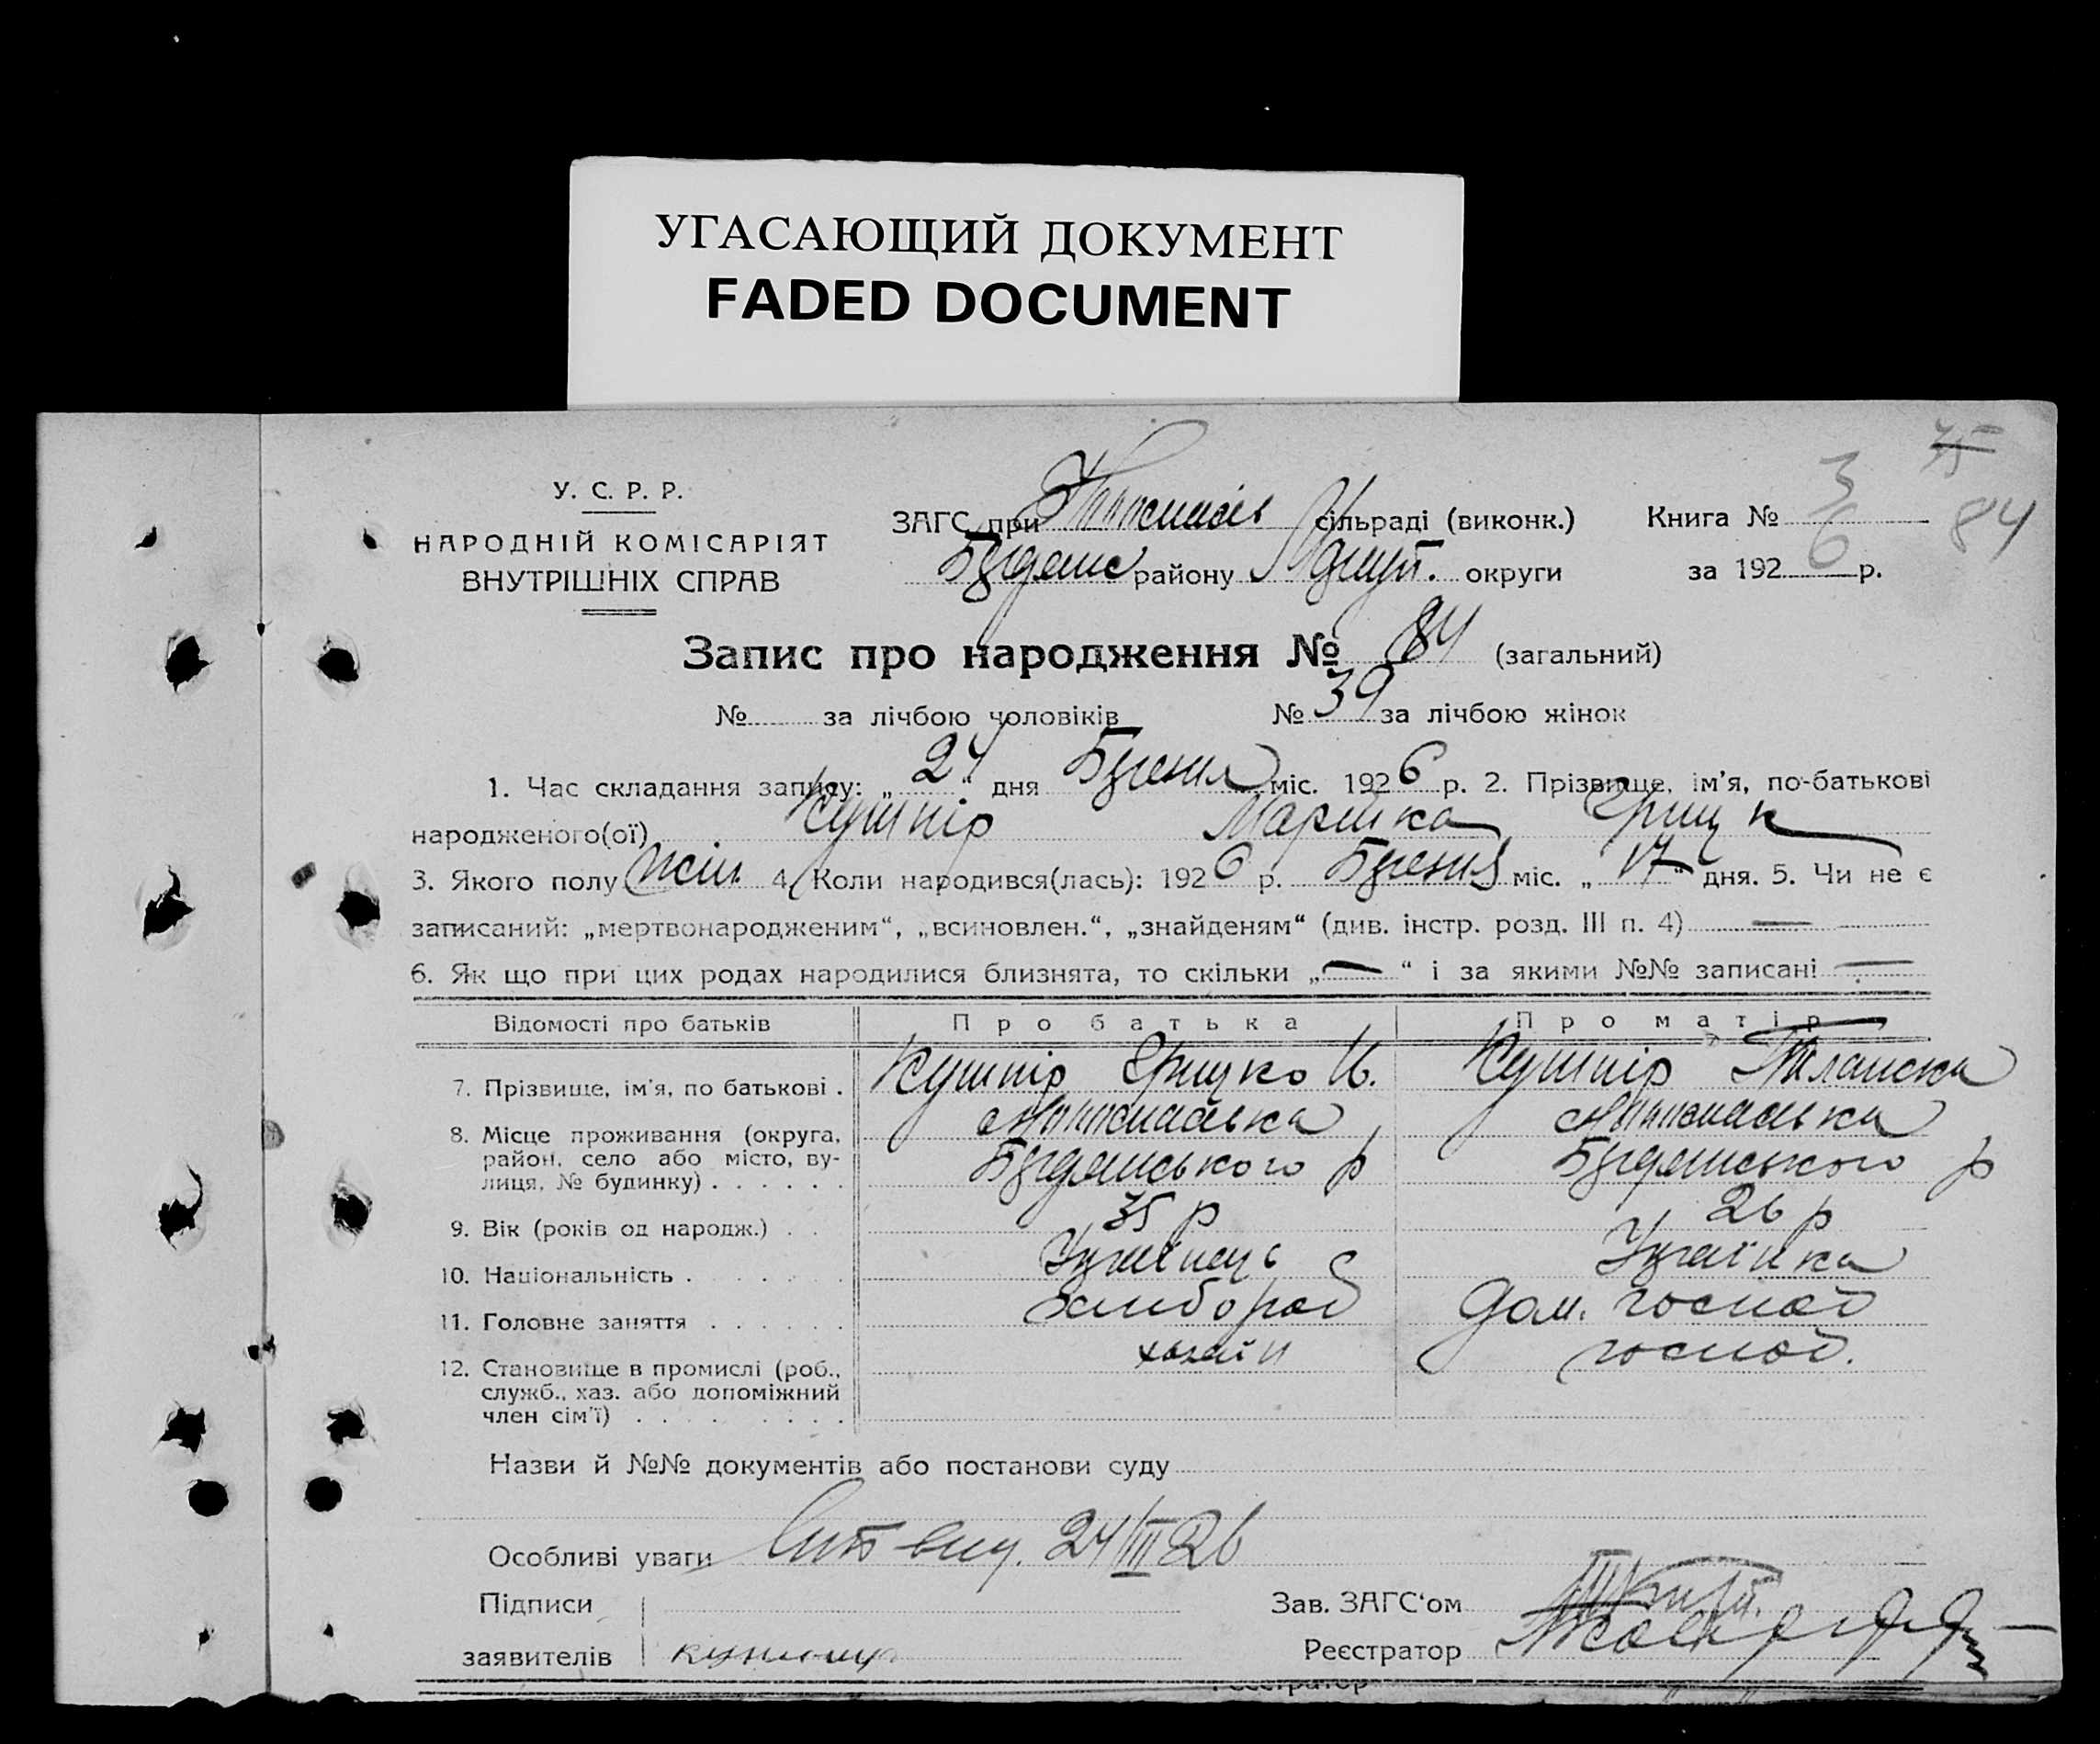 УГАСАЮЩИЙ ДОКУМЕНТ
FADED DOCUMENT
75
У. С. Р. Р.
НАРОДНІЙ КОМІСАРІЯТ
ВНУТРІШНІХ СПРАВ
ЗАГС при сільраді (виконк.) Книга № 3 84
району округи за 1926 р.
Запис про народження № 84 (загальний)
№ за лічбою чоловіків № 39 за лічбою жінок
1. Час складання запису: „24“ дня Березня міс. 1926 р. 2. Прізвище, ім'я, по-батькові
народженого(ої) Кушнір Марійка Грицьк
3. Якого полу жін. 4. Коли народився(лась): 1926 р. Березня міс. „17“ дня. 5. Чи не є
записаний: „мертвонародженим“, „всиновлен.“, „знайденям“ (див. інстр. розд. III п. 4) —
6. Як що при цих родах народилися близнята, то скільки „—“ і за якими №№ записані —
Відомості про батьків Про батька Про матір
7. Прізвище, ім'я, по батькові . Кушнір Грицько И. Кушнір
8. Місце проживання (округа,
район, село або місто, ву-
лиця, № будинку) . . . . . .
9. Вік (років од народж.) . . 35 р 26 р
10. Національність . . . . . . Українець Українка
11. Головне заняття . . . . . . хлібороб Дом. господ
12. Становище в промислі (роб., хазяїн господ.
служб., хаз. або допоміжний
член сім'ї) . . . . . . . .
Назви й №№ документів або постанови суду
Особливі уваги 24/III 26
Підписи Зав. ЗАГС'ом
заявителів Реєстратор